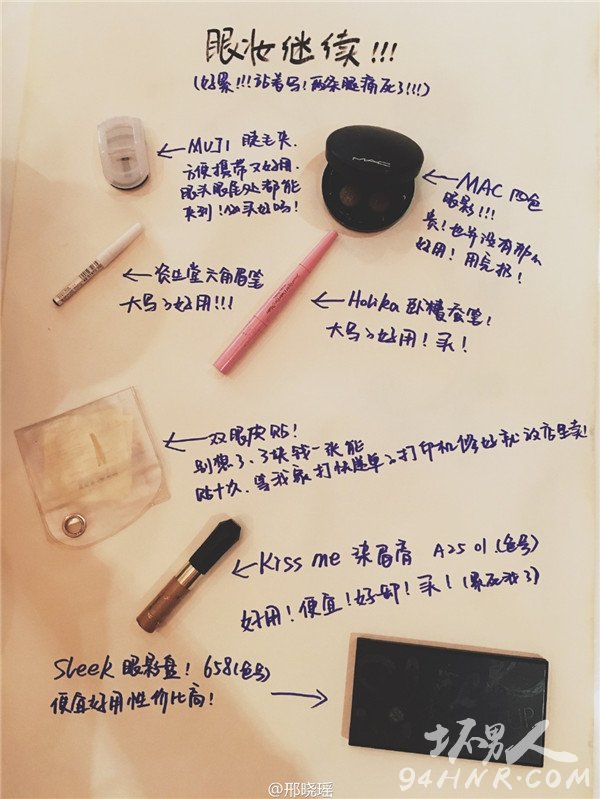 眼妆继续!!!
(好累!!!站着写!两条腿痛死了!!!)
←MUJI 睫毛夹.
方便携带又好用.
眼头眼尾处都能
夹到!必买好吗!
MAC
←MAC 四色
眼影!!!
贵!也并没有那么
好用!用完扔!
←资生堂六角眉笔
大马了好用!!!
←Holika 卧蚕笔!
大马了好用!买!
←双眼皮贴!
别想了、3块钱一张能
贴十次.等我家打快递单的打印机修好就放店里卖!
←Kiss me 染眉膏 A25 01(色号)
好用!便宜!好卸!买!(累死我了)
Sleek 眼影盘!658(色号)
便宜好用性价比高!→
坏男人
94HNR.COM
@邢晓瑶